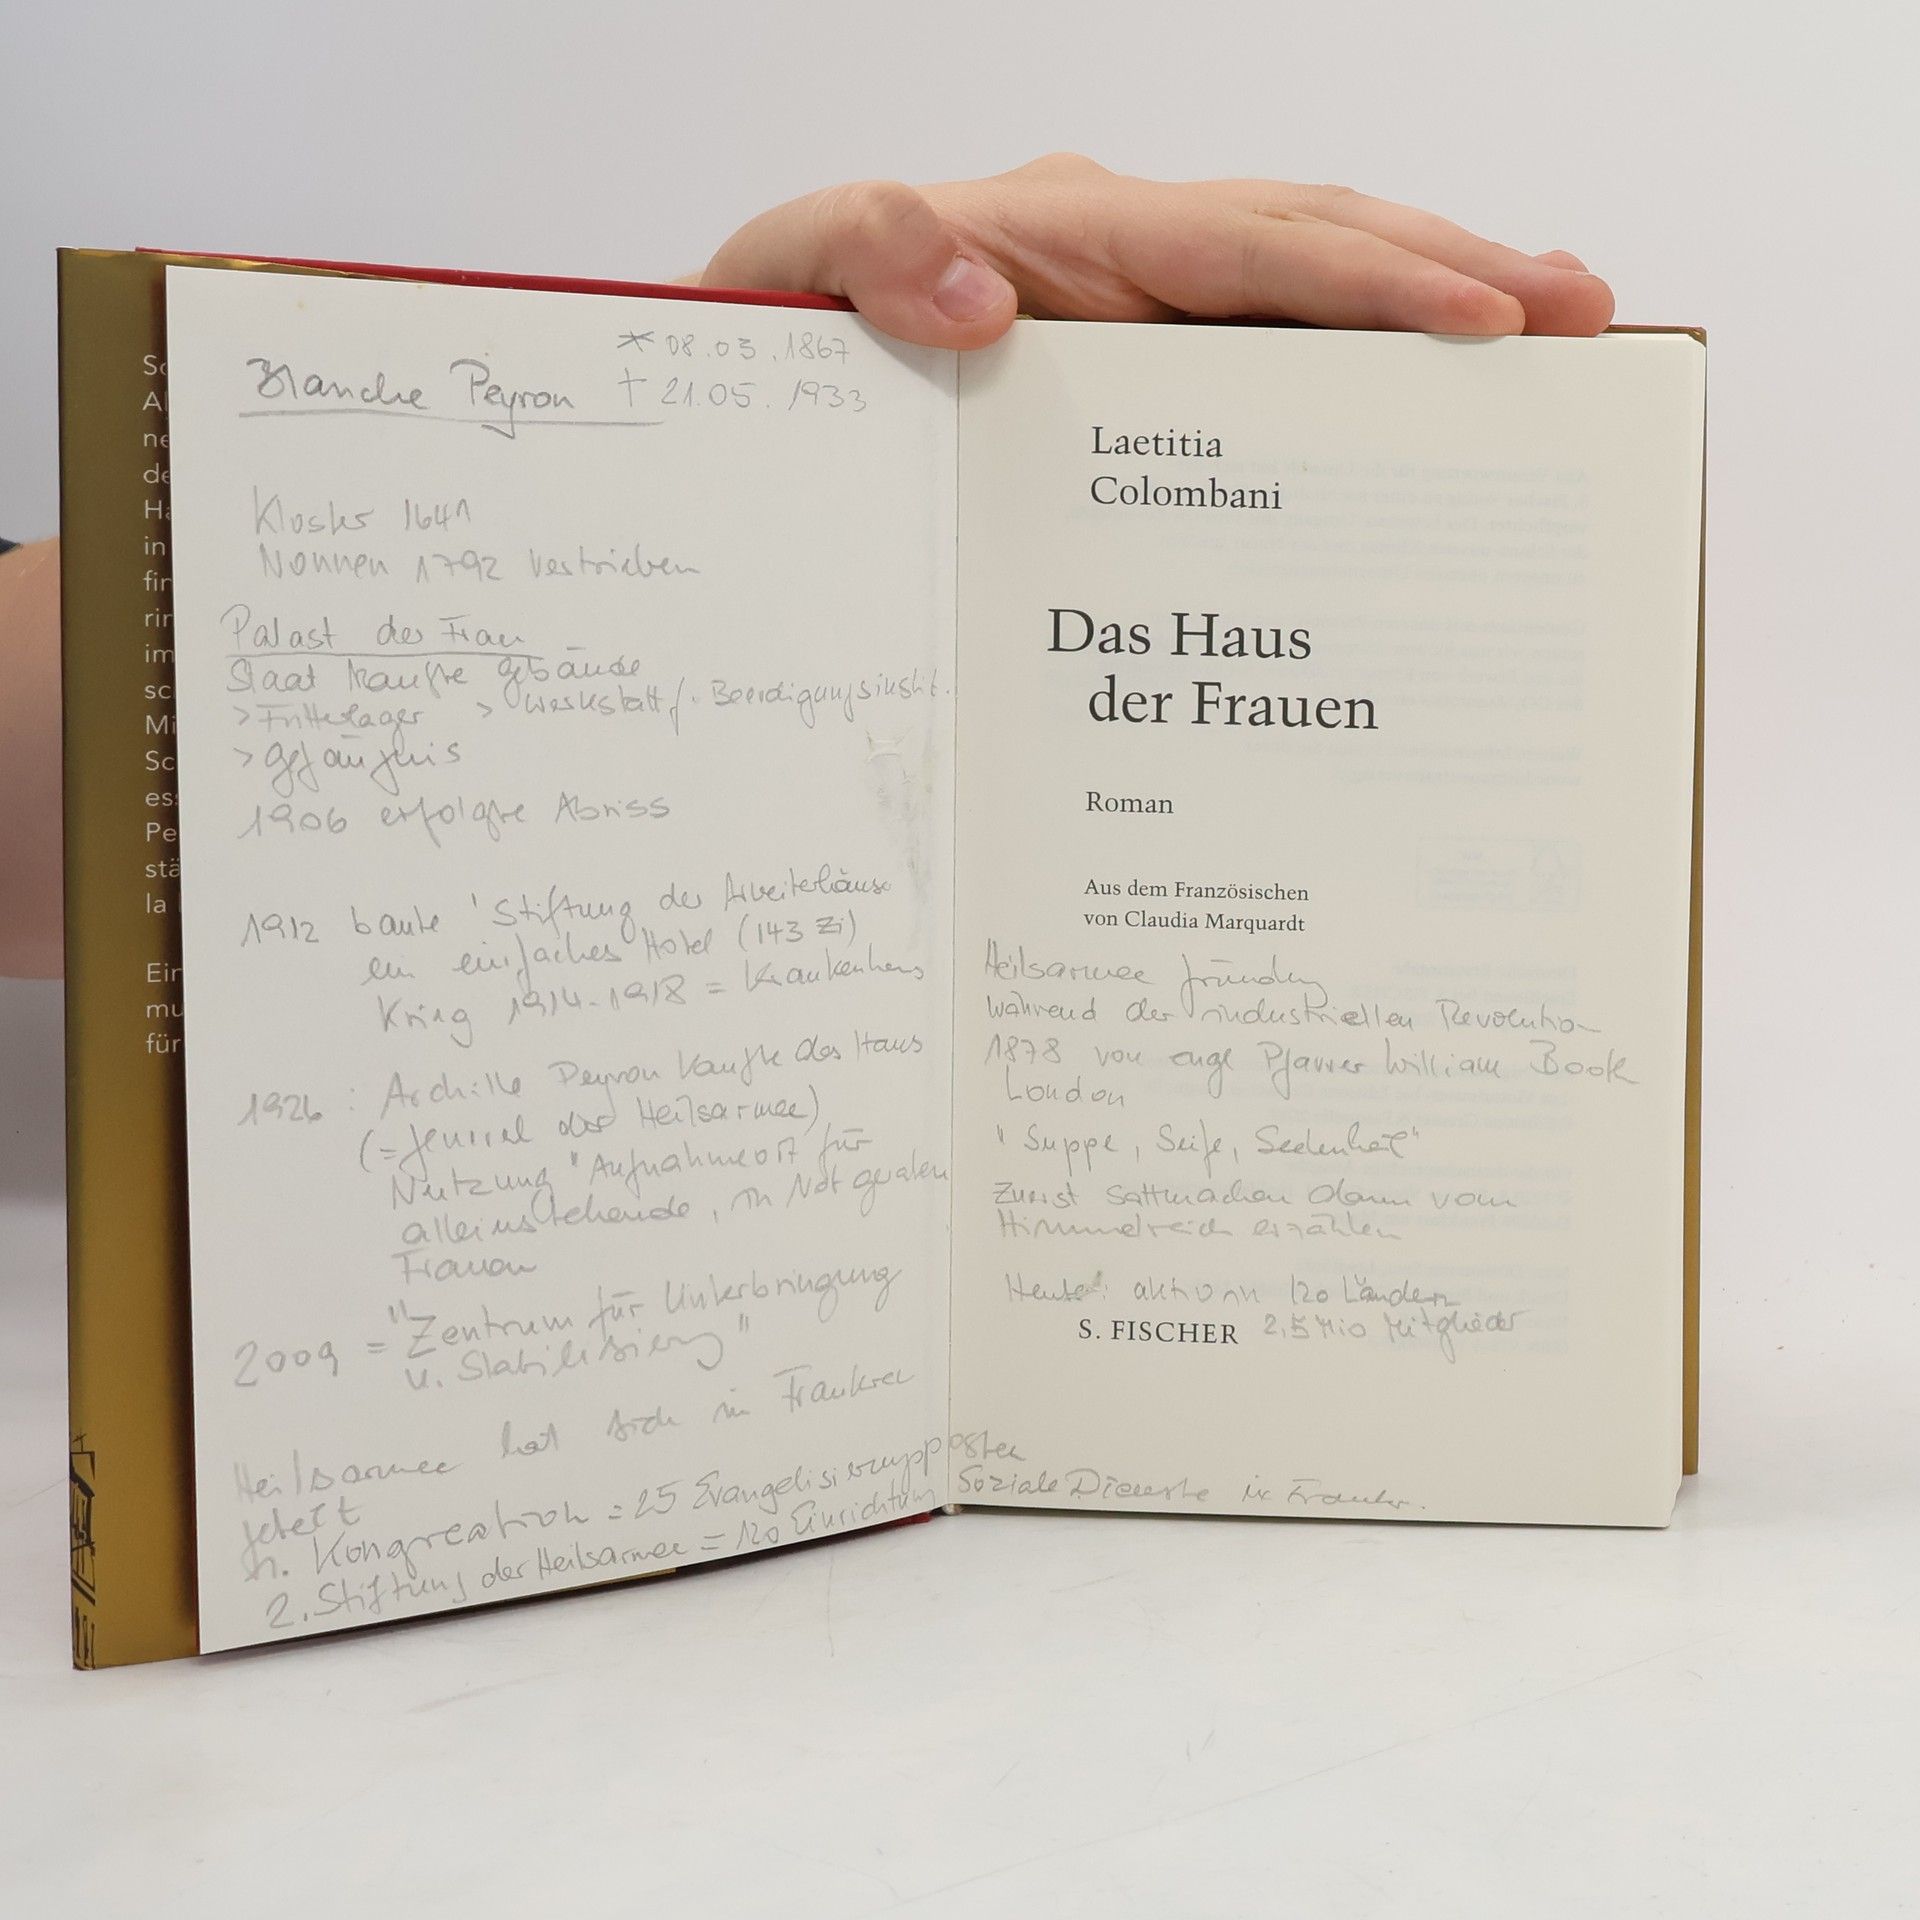 Sc
Al
ne
de
Ha
in
fin
rin
im
sc
Mi
Sc
es
Pe
stä
la
Ein
mu
für
Blanche Peyron
* 08.03.1867
† 21.05.1933
Kloster 1641
Nonnen 1792 vertrieben
Palast der Frau
Staat kaufte Gebäude
> Futterlager > Werkstatt f. Beerdigungsinstit.
> Gefängnis
1906 erfolgte Abriss
1912 baute 'Stiftung der Arbeiterhäuser
ein einfaches Hotel (143 Zi)
Krieg 1914-1918 = Krankenhaus
1926 : Archille Peyron kaufte das Haus
(= General der Heilsarmee)
Nutzung "Aufnahmeort für
alleinstehende, in Not geraten
Frauen
2009 = "Zentrum für Unterbringung
u. Stabilisierung"
Heilsarmee hat sich in Frankrei
geteilt
1. Kongreation = 25 Evangelisierungsposten
2. Stiftung der Heilsarmee = 120 Einrichtung Soziale Dienste in Frankr.
Laetitia
Colombani
Das Haus
der Frauen
Roman
Aus dem Französischen
von Claudia Marquardt
Heilsarmee
während der industriellen Revolution
1878 von engl Pfarrer William Booth
London
"Suppe, Seife, Seelenheil"
Zuerst sattmachen dann vom
Himmelreich erzählen
Heute: aktiv in 120 Ländern
S. FISCHER
2,5 Mio Mitglieder